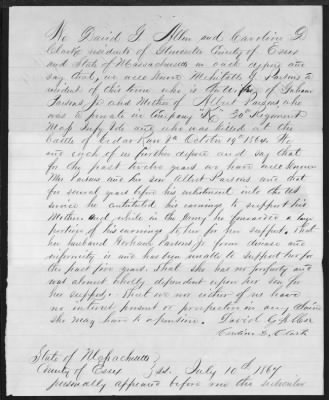 We David G Allen and Caroline G.
Clark residents of Gloucester County of Essex
and State of Massachusetts on oath depose and
say that, we well know Mehitable G Parsons a
resident of this town who is the Wife of
Parsons Jr and Mother of Albert Parsons, who
was a private in Company "K" Regiment
Mass Infy Vols and who was killed at the
Battle of Cedar Run Va October 19th 1864. We
and each of us further depose and say that
for the past twelve years we have well known
Mrs Parsons and her son Albert Parsons and that
for several years before his enlistment into the US
service he contributed his earnings to support his
Mother and while in the Army he forwarded a large
portion of his earnings to her for her support. That
her husband Parsons Jr from disease and
infirmity is and has been unable to support her for
the past five years. That she has no property and
was almost wholly dependent upon her son for
her support. That we nor either of us have
no interest present or prospective in any claim
she may have to a pension. David G Allen
Caroline G. Clark
State of Massachusetts
County of Essex } ss. July 10th 1867
personally appeared before me the subscriber